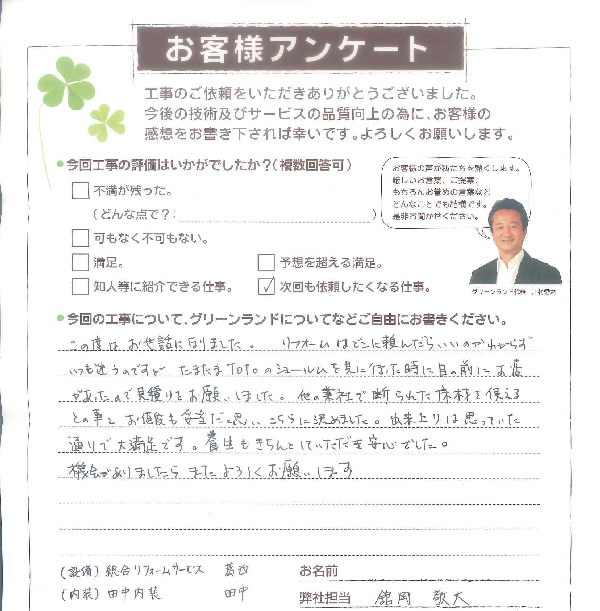 お客様アンケート
工事のご依頼をいただきありがとうございました。
今後の技術及びサービスの品質向上の為に、お客様の
感想をお書き下されば幸いです。よろしくお願いします。
●今回工事の評価はいかがでしたか？（複数回答可）
お客様の声が私たちを熱くします。
厳しいお言葉、ご提案、
もちろんお誉めの言葉など
どんなことでも結構です。
是非お聞かせください。
□不満が残った。
（どんな点で？：　　　）
□可もなく不可もない。
□満足。　□予想を超える満足。
□知人等に紹介できる仕事。　☑次回も依頼したくなる仕事。
グリーンランド代表
●今回の工事について、グリーンランドについてなどご自由にお書きください。
この度はお世話になりました。 リフォームはどこに頼んだらいいのかわからず
いつも迷うのですが たまたまTOTOのショールームを見に行った時に目の前にお店
があったので見積りをお願いしました。他の業社で断られた床材を使える
との事と お値段も妥当だと思い こちらに決めました。出来上りは思っていた
通りで大満足です。養生もきちんとしていただき安心でした。
機会がありましたら またよろしくお願いします
（設備）総合リフォームサービス 葛西　お名前
（内装）田中内装 田中　弊社担当 舘岡 敬大